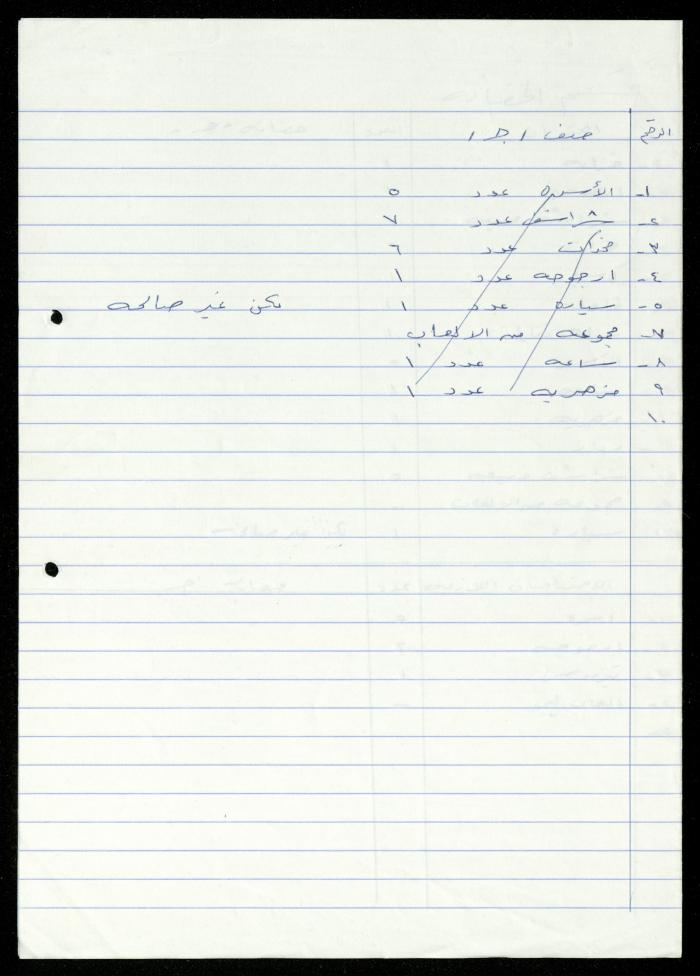 الرقم صنف ا جد ا
١- الأسره عدد ٥
٢- شراشف عدد ٧
٣- مخدات عدد ٦
٤- ارجوحه عدد ١
٥- سياره عدد ١ لكن غير صالحه
٧- مجموعه من الالعاب
٨- ساعه عدد ١
٩ مزهريه عدد ١
١٠